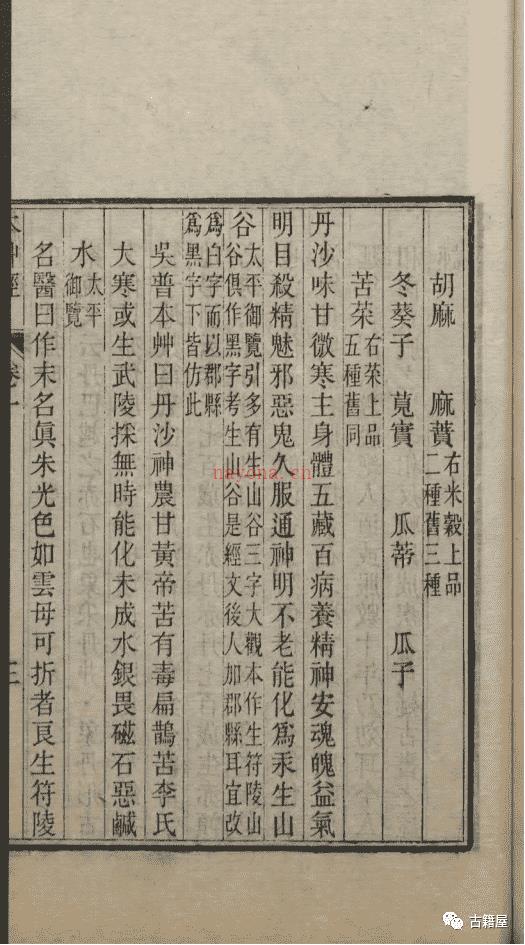 胡麻 麻蕡右米穀上品二種舊三種
冬葵子 莧實 瓜蒂 瓜子
苦菜右菜上品五種舊同
丹沙味甘微寒主身體五藏百病養精神安魂魄益氣
明目殺精魅邪惡鬼久服通神明不老能化爲汞生山
谷太平御覽引多有生山谷三字大觀本作生符陵山谷俱作黑字考生山谷是經文後人加郡縣耳宜改
爲白字而以郡縣爲黑字下皆仿此
吳普本艸曰丹沙神農甘黃帝苦有毒扁鵲苦李氏
大寒或生武陵採無時能化未成水銀畏磁石惡鹹
水太平御覽
名醫曰作末名眞朱光色如雲母可折者良生符陵
卷一
三
nayona.cn
古籍屋